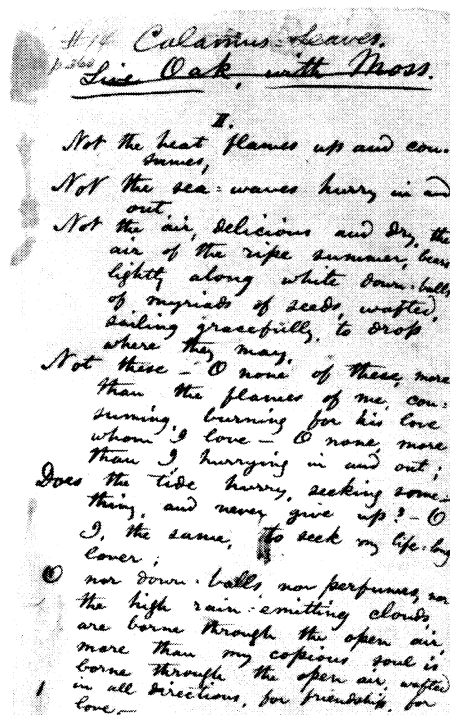 #14 Calamus-Leaves.
p 360
Live Oak, with Moss.
I.
Not the heat flames up and con-
sumes,
Not the sea-waves hurry in and
out,
Not the air, delicious and dry, the
air of the ripe summer, bears
lightly along white down-balls
of myriads of seeds, wafted,
sailing gracefully, to drop
where they may,
Not these — O none of these, more
than the flames of me, con-
suming, burning for his love
whom I love — O none, more
than I, hurrying in and out;
Does the tide hurry, seeking some-
thing, and never give up? — O
I, the same, to seek my life-long
lover;
O nor down-balls, nor perfumes, nor
the high rain-emitting clouds,
are borne through the open air,
more than my copious soul is
borne through the open air, wafted
in all directions, for friendship, for
love. —